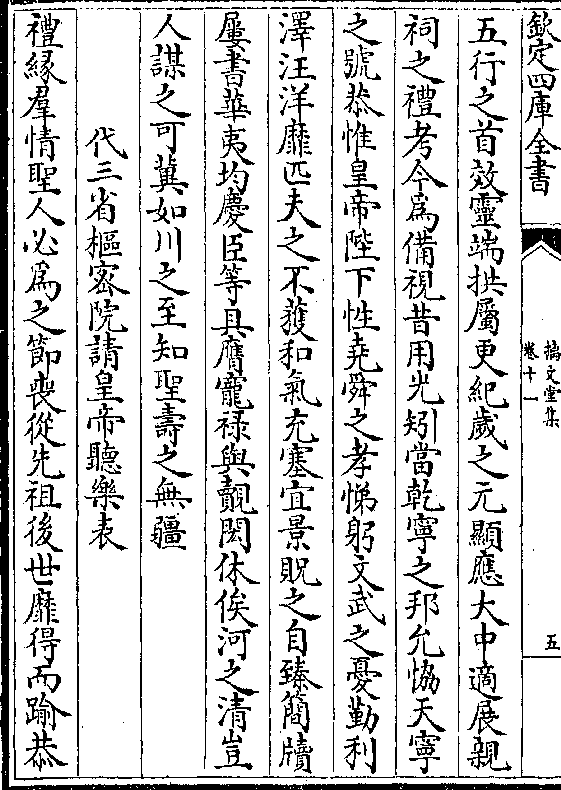 欽定四庫全書
摛文堂集
卷十一
五
五行之首效靈端拱屬更紀歲之元顯應大中適展親
祠之禮考今為備視昔用光矧當乾寧之邦允恊天寧
之號恭惟皇帝陛下性堯舜之孝悌躬文武之憂勤利
澤汪洋靡匹夫之不獲和氣充塞宜景貺之自臻簡牘
屢書華夷均慶臣等具膺寵禄與覩閎休俟河之清豈
人謀之可冀如川之至知聖壽之無疆
代三省樞宻院請皇帝聽樂表
禮縁羣情聖人必為之節喪從先祖後世靡得而踰恭